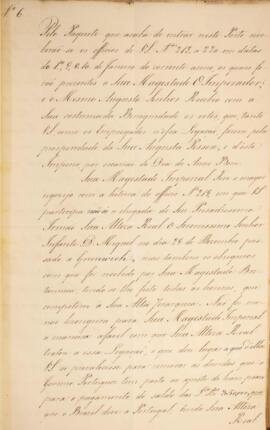 Nº 6
Pelo Paquete que acaba de entrar neste Porto recebi
os officios de V.S. Nos 213 a 220 em datas
do 1º, 2, 8, 10 de Janeiro do corrente anno, os quaes forão
presentes a Sua Magestade O Imperador;
e o Mesmo Augusto Senhor Recebeo com a
Sua costumada Benignidade os votos, que, tanto
V.S. como os Empregados n'essa Legação fazem pela
prosperidade da Sua Augusta Pessoa, e d'este
Imperio, por occasião do Dia de Anno Bom.
Sua Magestade Imperial
com a leitura do officio Nº 218, em que V.S.
participa não só a chegada de Seu Presadissimo
Irmão Sua Alteza Real o Serenissimo Senhor
Infante D. Miguel no dia 28 de Dezembro passado
a Greenwich, mas tambem os obsequios
com que foi recebido por Sua Magestade Britannica,
tendo-se-lhe feito todas as honras, que
competem á Sua Alta Jerarquia. Não foi menos
lisongeira para Sua Magestade Imperial
a maneira affavel com que Sua Alteza Real
tratou a essa Legação, e que deu lugar a que
V.S. para remover as duvidas que o
Governo Portuguez tem posto
para o pagamento do saldo
que o Brasil deve a Portugal, tendo Sua Alteza
Real